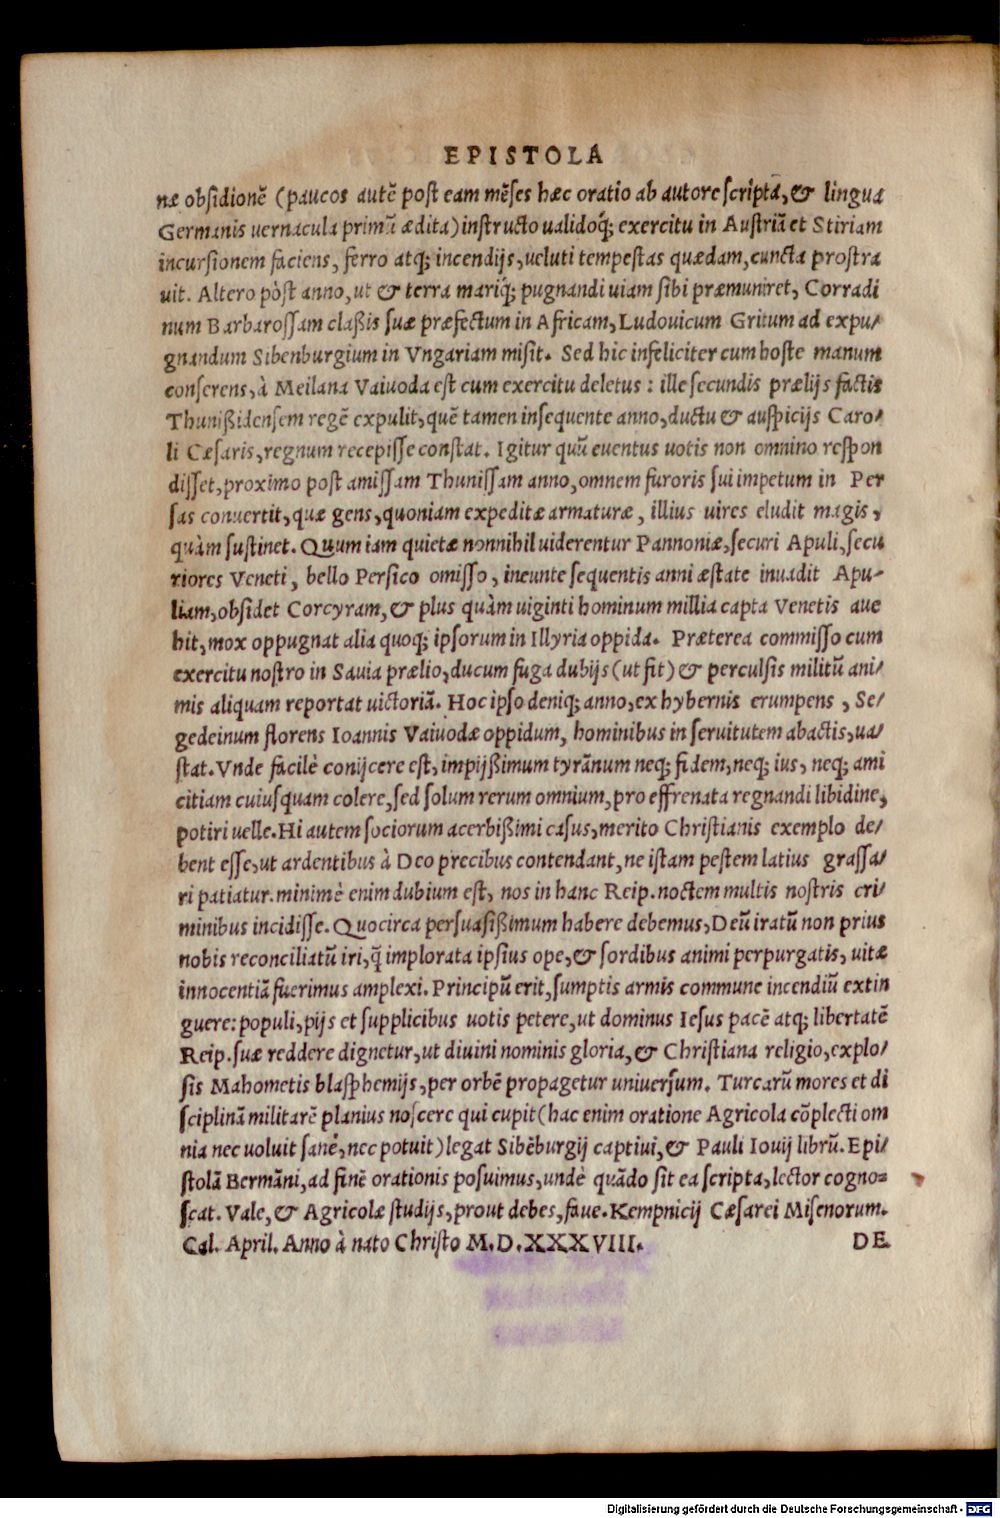 EPISTOLA
næ obsidionẽ (paucos autẽ post eam mẽses hæc oratio ab autore scripta, & lingua
Germanis vernacula primũ ædita) instructo validoq́; exercitu in Austriã et Stiriam
incursionem faciens, ferro atq; incendijs, veluti tempestas quædam, cuncta prostra
vit. Altero pòst anno, ut & terra mariq́; pugnandi viam sibi præmuniret, Corradi
num Barbarossam claßis suæ præfectum in Africam, Ludovicum Gritum ad expu/
gnandum Sibenburgium in Vngariam misit. Sed hic infeliciter cum hoste manum
conserens, à Meilana Vaivoda est cum exercitu deletus: ille secundis prælijs factis
Thunißidensem regẽ expulit, quẽ tamen insequente anno, ductu & auspicijs Caro/
li Cæsaris, regnum recepisse constat. Igitur quũ eventus votis non omnino respon
disset, proximo post amissam Thunissam anno, omnem furoris sui impetum in Per
sas convertit, quæ gens, quoniam expeditæ armaturæ, illius vires eludit magis,
quàm sustinet. Quum iam quietæ nonnihil viderentur Pannoniæ, securi Apuli, secu
riores Veneti, bello Persico omisso, ineunte sequentis anni æstate invadit Apu-
liam, obsidet Corcyram, & plus quàm viginti hominum millia capta Venetis ave
hit, mox oppugnat alia quoq; ipsorum in Illyria oppida. Præterea commisso cum
exercitu nostro in Savia prælio, ducum fuga dubijs (ut fit) & perculsis militũ ani/
mis aliquam reportat victoriã. Hoc ipso deniq; anno, ex hybernis erumpens, Se/
gedeinum florens Ioannis Vaivodæ oppidum, hominibus in servitutem abactis, va/
stat. Vnde facilè conijcere est, impijßimum tyrãnum neq; fidem, neq; ius, neq; ami
citiam cuiusquam colere, sed solum rerum omnium, pro effrenata regnandi libidine,
potiri velle. Hi autem sociorum acerbißimi casus, merito Christianis exemplo de/
bent esse, ut ardentibus à Deo precibus contendant, ne istam pestem latius grassa/
ri patiatur. minimè enim dubium est, nos in hanc Reip. noctem multis nostris cri/
minibus incidisse. Quocirca persuasißimum habere debemus, Deũ iratũ non prius
nobis reconciliatũ iri, q̃ implorata ipsius ope, & sordibus animi perpurgatis, vitæ
innocentiã fuerimus amplexi. Principũ erit, sumptis armis commune incendiũ extin
guere: populi, pijs et supplicibus votis petere, ut dominus Iesus pacẽ atq; libertatẽ
Reip. suæ reddere dignetur, ut divini nominis gloria, & Christiana religio, explo/
sis Mahometis blasphemijs, per orbẽ propagetur universum. Turcarũ mores et di
sciplinã militarẽ planius noscere qui cupit (hac enim oratione Agricola cõplecti om
nia nec voluit sanè, nec potuit) legat Sibẽburgij captivi, & Pauli Iovij librũ. Epi/
stolã Bermãni, ad finẽ orationis posuimus, undè quãdo sit ea scripta, lector cogno=
scat. Vale, & Agricolæ studijs, prout debes, fave. Kempnicij Cæsarei Misenorum.
Cal. April. Anno à nato Christo M.D.XXXVIII.
DE
Digitalisierung gefördert durch die Deutsche Forschungsgemeinschaft - DFG